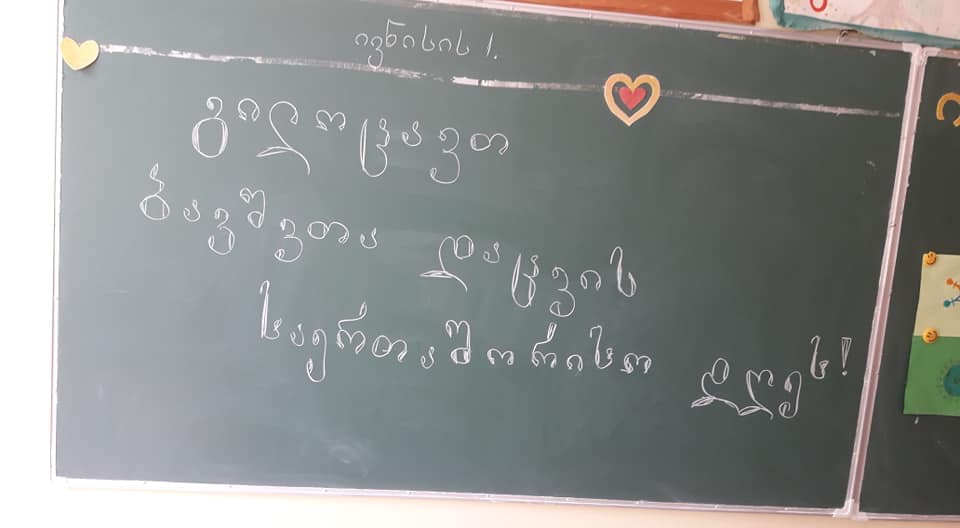 ივნისის 1.
გილოცავთ
ბავშვთა დაცვის
საერთაშორისო დღეს!